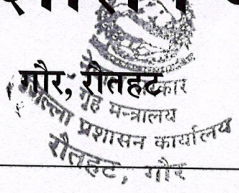 गौर, रौतहट
गृह मन्त्रालय
जिल्ला प्रशासन कार्यालय
रौतहट, गौर